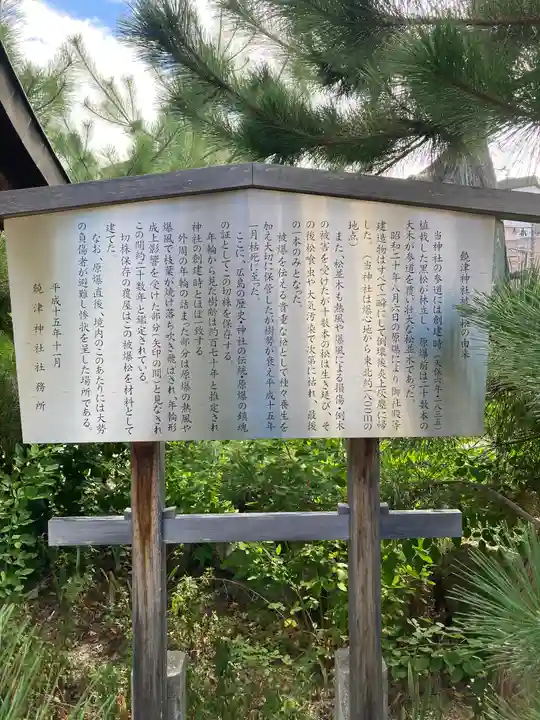 饒津神社被爆松の由来
当神社の参道には創建時(天保六年・一八三五)
植栽した黒松が林立し、原爆前は二十数本の
大木が参道を覆い壮大な松並木であった。
昭和二十年八月六日の原爆により御社殿等
建造物はすべて一瞬にして倒壊後炎上灰塵に帰
した。(当神社は爆心地から東北約一八〇〇mの
地点)
また、松並木も熱風や爆風による損傷・倒木
の被害を受けたが十数本の松は生き延び、そ
の後松喰虫や大気汚染で次第に枯れ、最後
の一本のみとなった。
被爆を伝える貴重な松として種々養生を
加え大切に保管したが樹勢が衰え平成十五年
一月枯死に至った。
ここに、広島の歴史・神社の伝統・原爆の鎮魂
の証としてこの切株を保存する。
年輪から見た樹齢は百七十年と推定され
神社の創建時とほぼ一致する。
外周の年輪の詰まった部分は原爆の熱風や
爆風で枝葉が焼け落ち吹き飛ばされ、年輪形
成上影響を受けた部分(矢印の間)と見なされ
この間約二十数年と鑑定されている。
切株保存の覆屋はこの被爆松を材料として
建てた。
なお、原爆直後、境内のこのあたりには大勢
の負傷者が避難し惨状を呈した場所である。
平成十五年十一月
饒津神社社務所